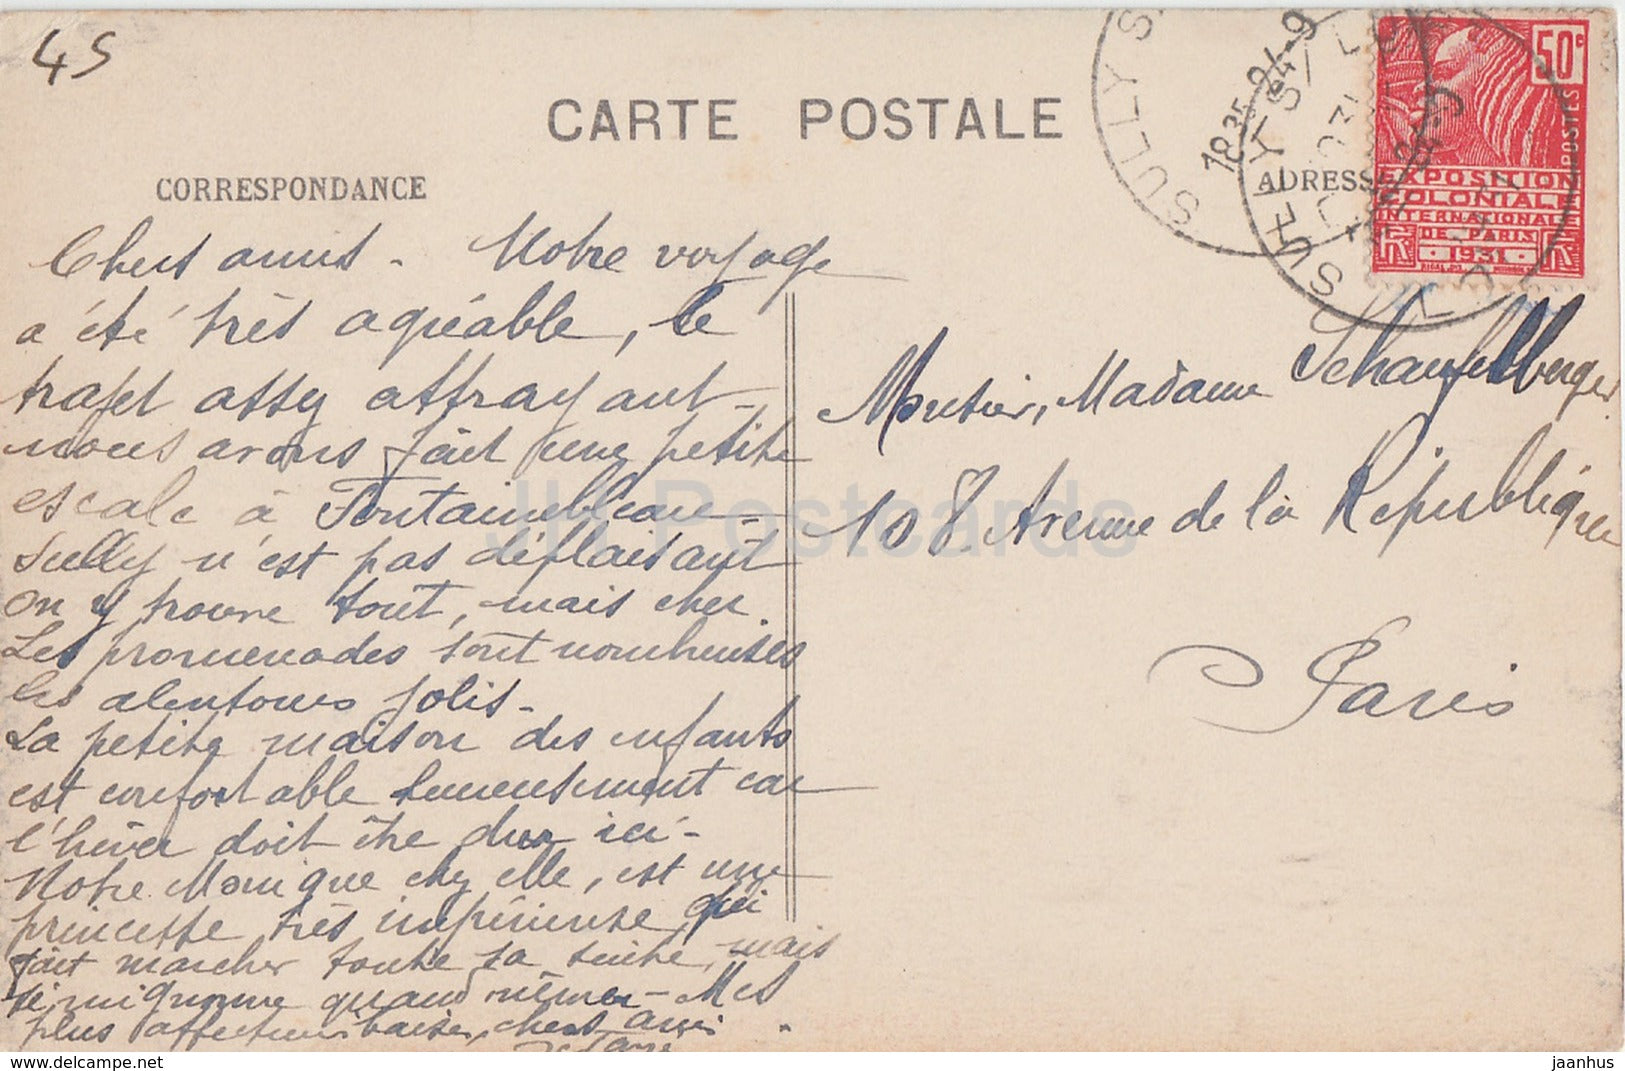 45
CARTE POSTALE
CORRESPONDANCE
ADRESSE
SULLY S
SULLY S/ L
1835 24-9
50c
POSTES
EXPOSITION
COLONIALE
INTERNATIONALE
DE PARIS
1931
Chers amis - Notre voyage
a été très agréable, le
trajet assez attrayant -
nous avons fait une petite
escale à Fontainebleau -
Sully n'est pas déplaisant
on y trouve tout, mais cher.
Les promenades sont nombreuses
les alentours jolis -
La petite maison des enfants
est confortable heureusement car
l'hiver doit être dur ici -
Notre Monique chez elle, est une
princesse très impérieuse qui
fait marcher toute sa suite, mais
si mignonne quand même - Mes
plus affectueux baisers, chers amis.
Monsieur, Madame Schaufelberger
108. Avenue de la République
Paris
JH Postcards
https://www.ebay.com/usr/jaanhus
jaanhus